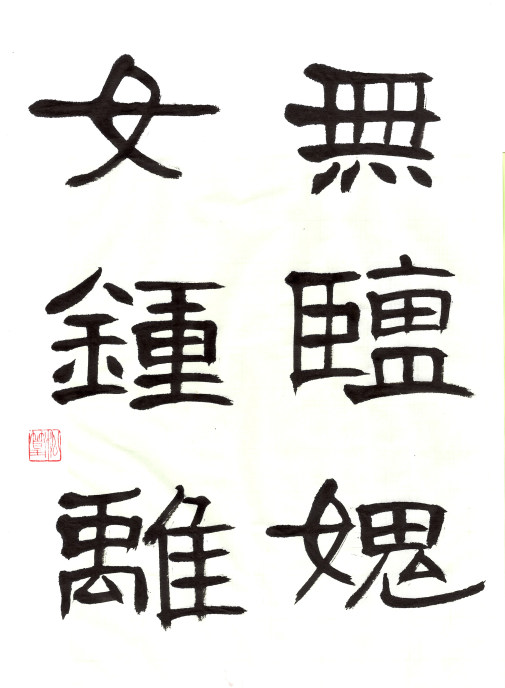 無鹽媿
女鍾離